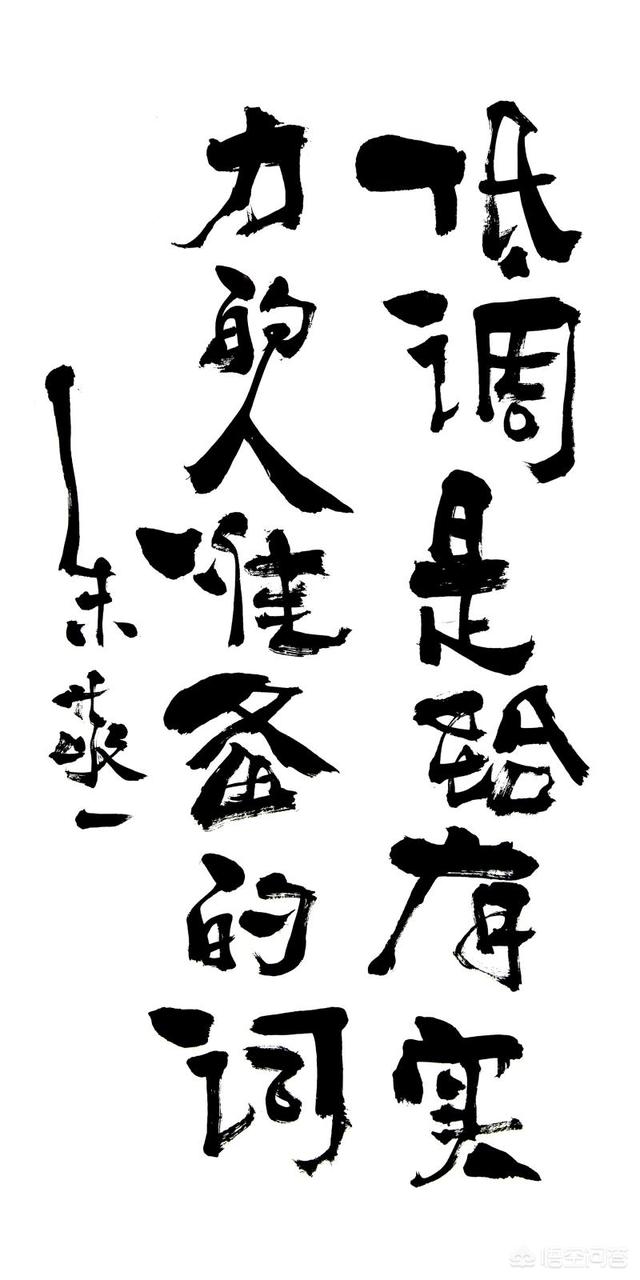 低调是给有实
力的人准备的词
朱敬一
悟空问答